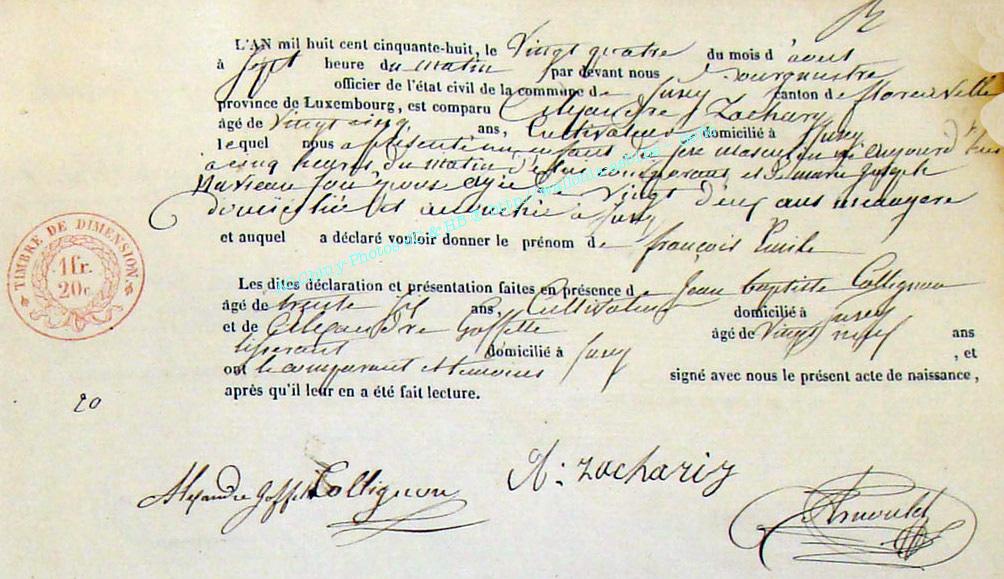 L'AN mil huit cent cinquante-huit, le Vingt quatre du mois d'aout
à Sept heure du matin par devant nous Bourgmestre
officier de l'état civil de la commune de Jusey canton de florenville
province de Luxembourg, est comparu Alexandre Zachary
âgé de Vingt cinq ans, Cultivateur domicilié à Jusey
lequel nous a présenté un enfant de sexe masculin né aujourd'hui
a cinq heures du matin, de lui comparant et de marie josephe
son epouse agée de Vingt deux ans menagere
domiciliée et accouchée a Jusey
et auquel a déclaré vouloir donner le prénom de françois Emile
Les dites déclaration et présentation faites en présence de Jean baptiste Collignon
âgé de trente six ans, Cultivateur domicilié à Jusey
et de Alexandre Goffette âgé de Vingt neuf ans
tisserant domicilié à Jusey, et
ont le comparant et temoins signé avec nous le présent acte de naissance,
après qu'il leur en a été fait lecture.
TIMBRE DE DIMENSION
1 fr.
20 c.
20
A: Zachariy
Alexandre Goffette Collignon
Arnould